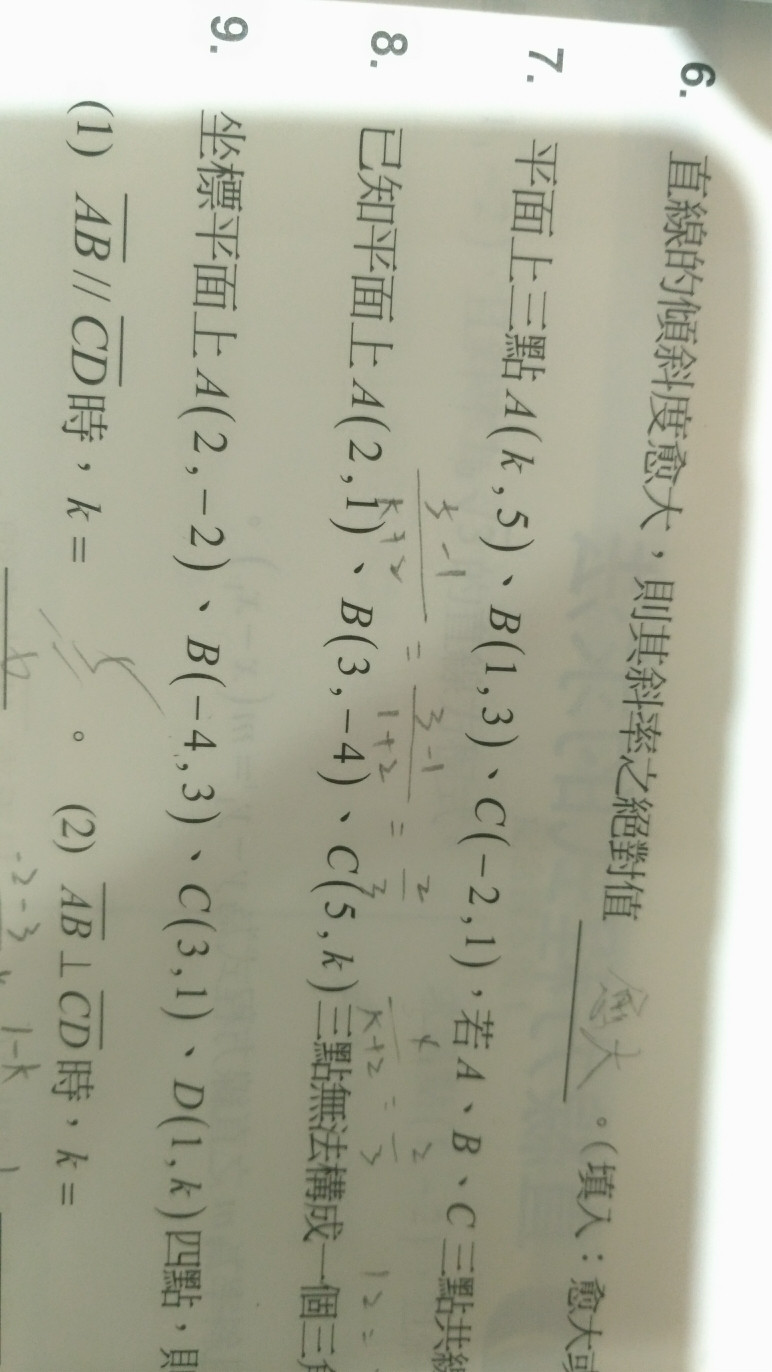 6. 直線的傾斜度愈大，則其斜率之絕對值 愈大 。（填入：愈大或
7. 平面上三點 A(k,5)、B(1,3)、C(−2,1)，若 A、B、C 三點共線
5-1 / k+2 = 3-1 / 1+2 = 2 / 3
4 / k+2 = 2 / 3
12 =
8. 已知平面上 A(2,1)、B(3,−4)、C(5,k) 三點無法構成一個三角
9. 坐標平面上 A(2,−2)、B(−4,3)、C(3,1)、D(1,k) 四點，則
(1) AB // CD 時，k = 。 (2) AB ⊥ CD 時，k =
-2-3
1-k